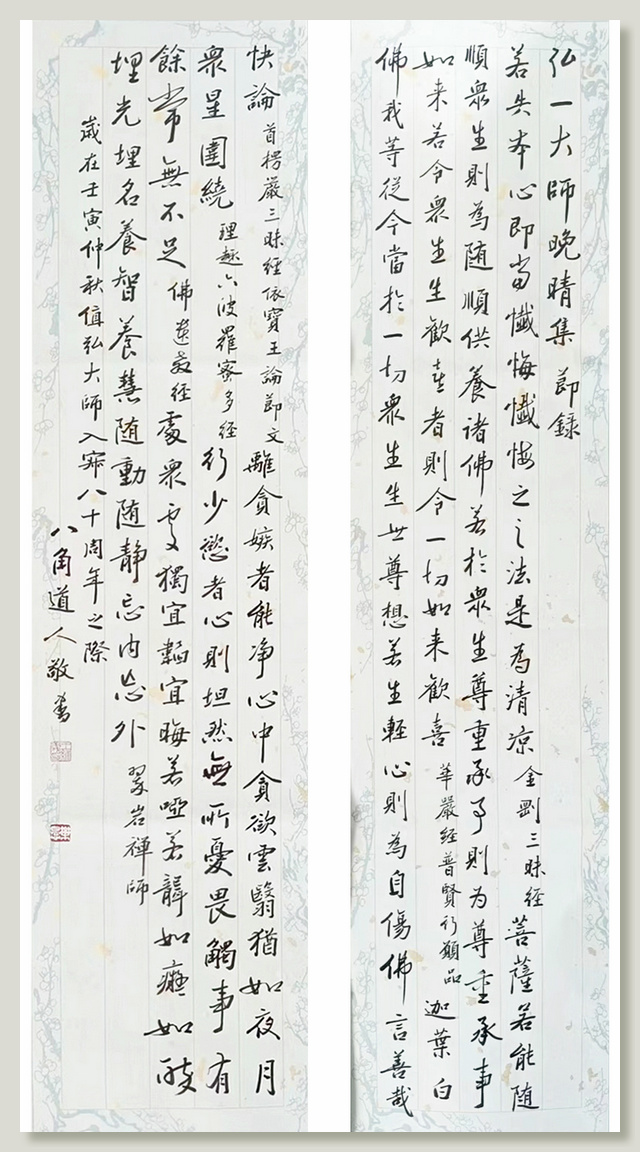 弘一大師晚晴集 節錄
若失本心即當懺悔懺悔之之法是為清凉 金剛三昧經 菩薩若能随
順衆生則為随順供養諸佛若於衆生尊重承事則为尊重承事
如来若令衆生生歡喜者則令一切如来歡喜 華嚴經普賢行願品 迦葉白
佛我等從今當於一切衆生生世尊想若生輕心則為自傷佛言善哉
快論 首楞嚴三昧經依寶王論節文 離貪嫉者能净心中貪欲雲翳猶如夜月
衆星圍繞 理趣六波羅蜜多經 行少慾者心則坦然無所憂畏觸事有
餘常無不足 佛遺教經 處衆處獨宜韜宜晦若啞若聾如癡如醉
埋光埋名養智養慧随動随靜忘内忘外 翠岩禪師
嵗在壬寅仲秋值弘大師入寂八十周年之際
八角道人敬書